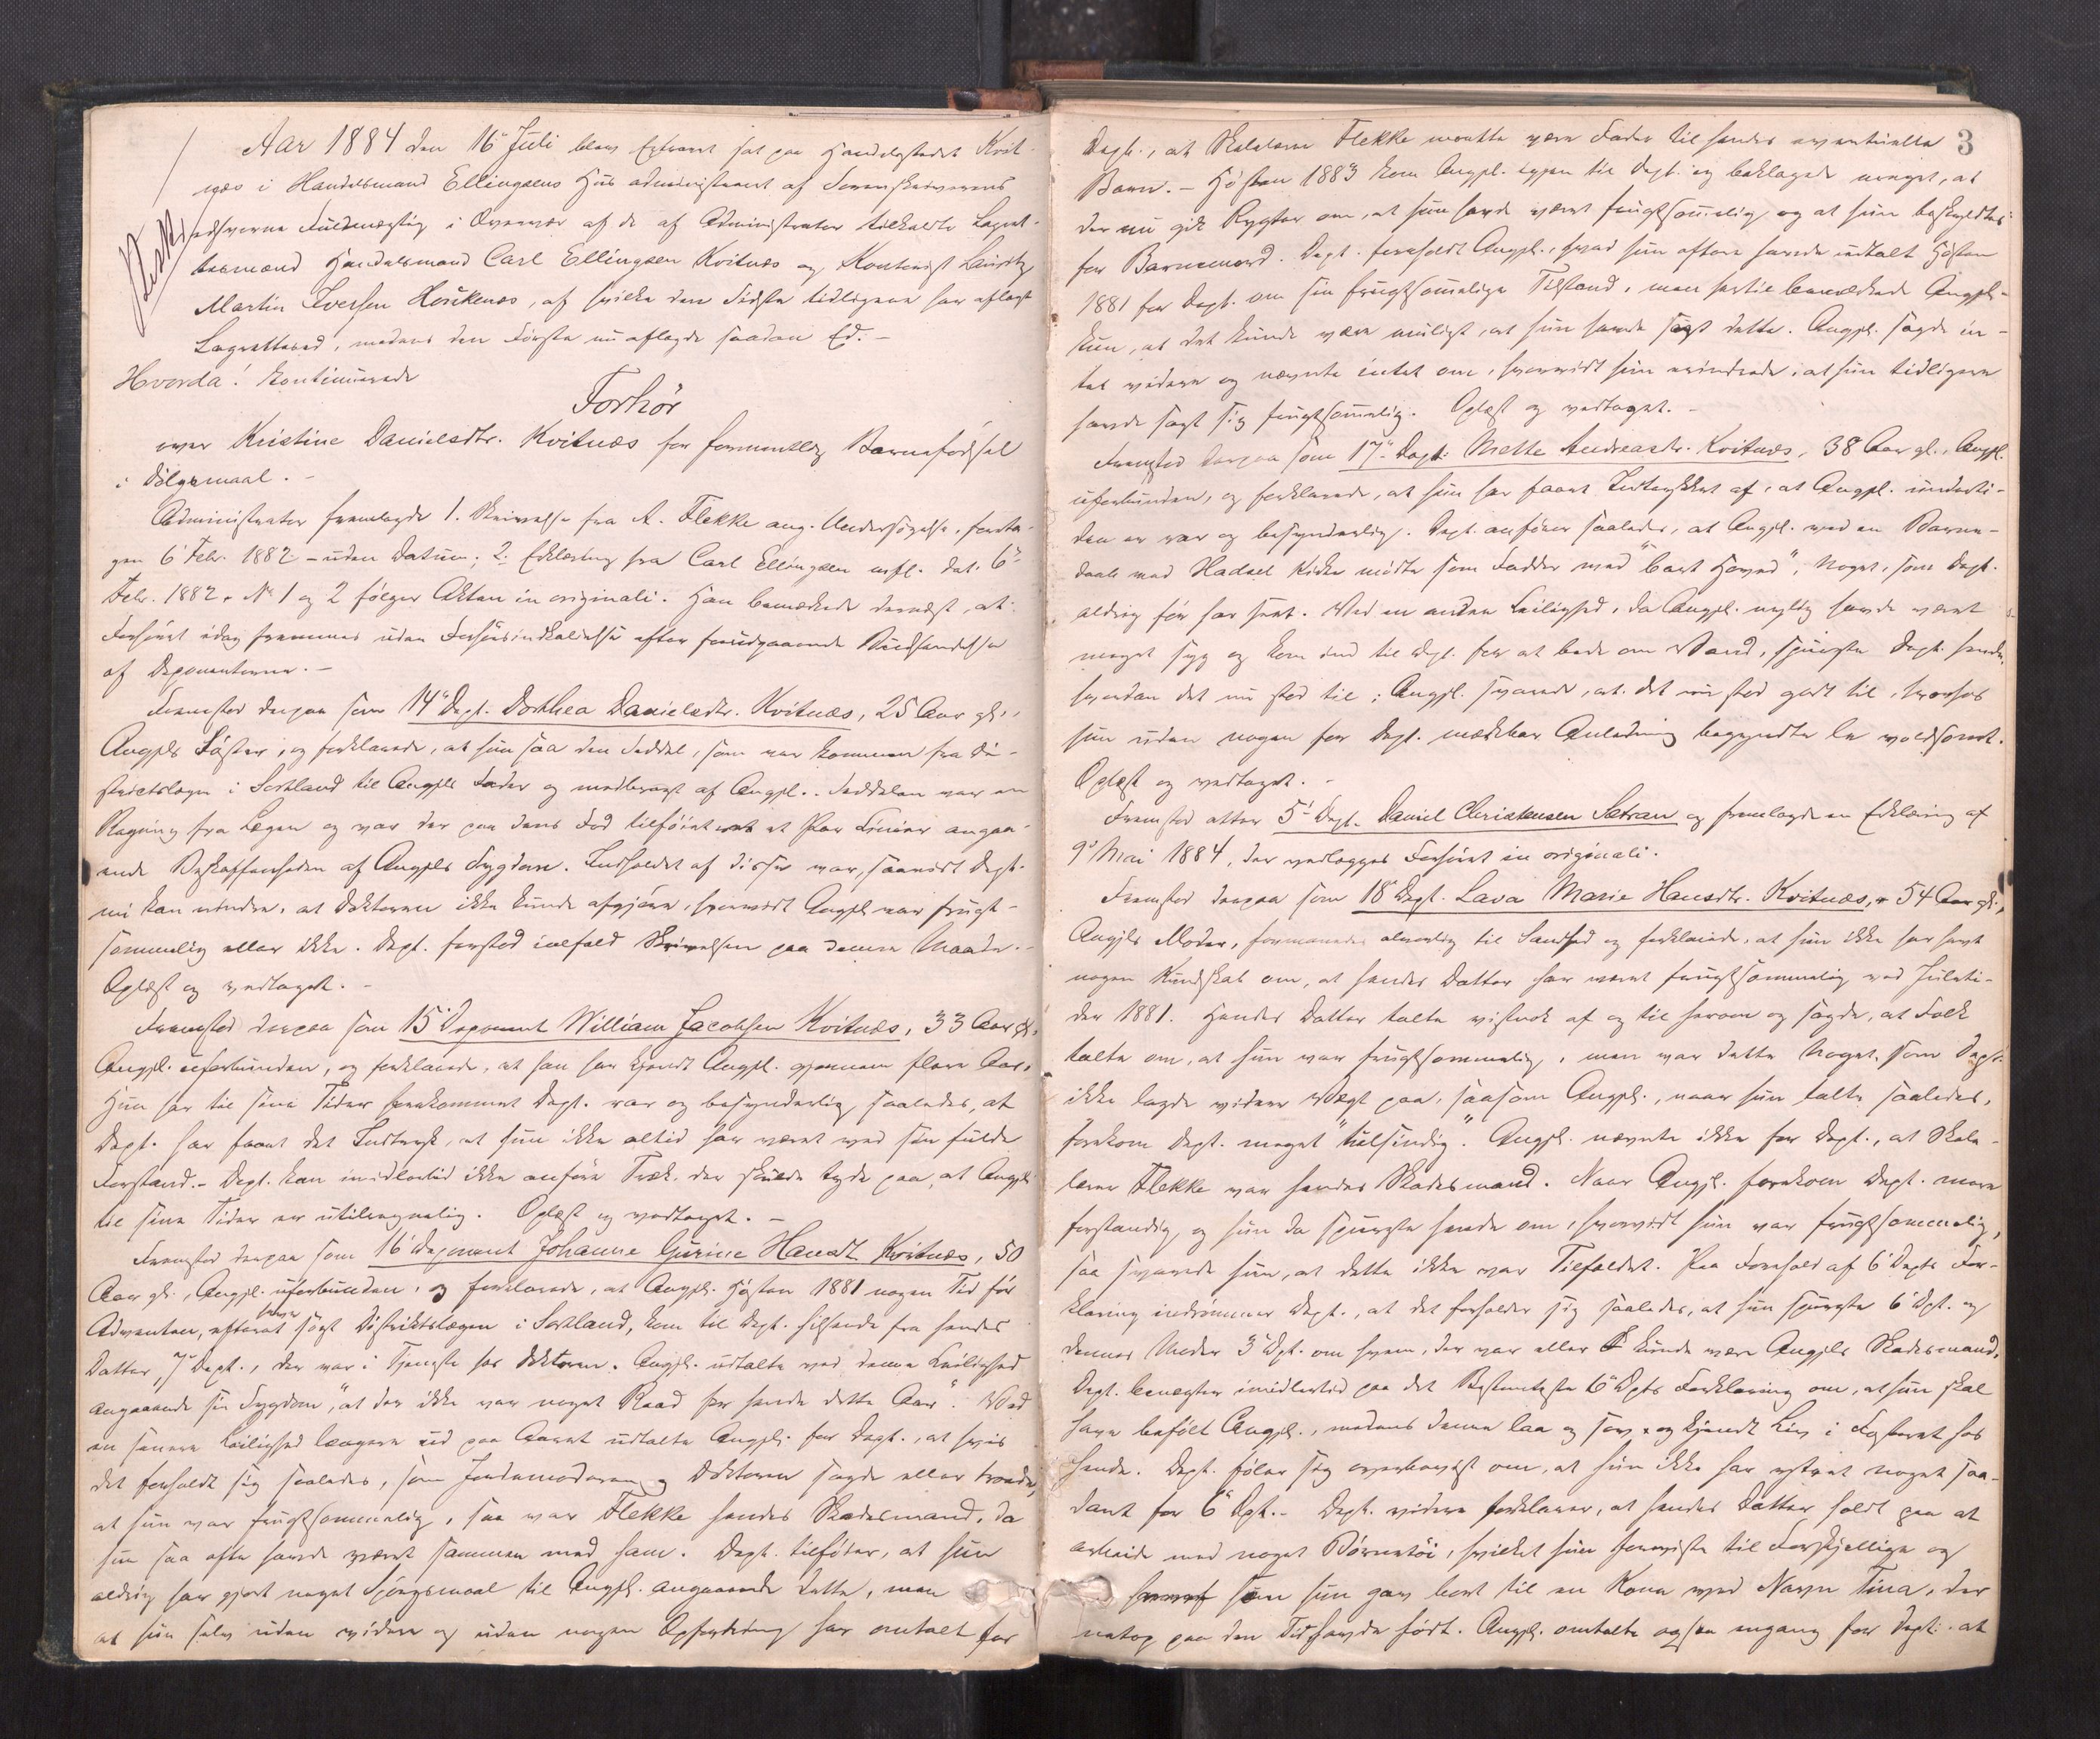 Aar 1884 den 16de Juli blev Extraret sat paa Handelsstedet Kvit-
næs i Handelsmand Ellingsens Hus administreret af Sorenskriverens
edsvorne Fuldmægtig i Overvær af de af Administrator tilkaldte Lagret-
tesmænd Handelsmand Carl Ellingsen Kvitnæs og Kontorist Lauritz
Martin Iversen Houkenæs, af hvilke den Sidste tidligere har aflagt
Lagretteed, medens den Første nu aflagde saadan Ed. –
Hvorda! kontinuerede
Forhör
over Kristine Danielsdtr. Kvitnæs for formentlig Barnefødsel
i Dølgsmaal. –
Administrator fremlagde 1. Skrivelse fra A. Flekke ang. Undersøgelse, foreta-
gen 6 Febr. 1882 – uden Datum; 2. Erklæring fra Carl Ellingsen mfl. dat. 6te
Febr. 1882. No 1 og 2 følger Akten in originali. Han bemærkede dernæst, at
Forhöret idag fremmes uden Forhörsindkaldelse efter forudgaaende Budsendelse
af Deponenterne. –
Fremstod derpaa som 14de Dept. Dorthea Danielsdtr. Kvitnæs, 25 Aar gl.,
Angjpls Söster, og forklarede, at hun saa den Seddel, som var kommen fra Di-
striktslægen i Sortland til Angjpls Fader og medbragt af Angjpl.. Seddelen var en
Regning fra Lægen og var der paa dens Fod tilföiet et Par Linier angaa-
ende Beskaffenheden af Angjpls Sygdom. Indholdet af disse var, saavidt Dept.
nu kan mindes, at Doktoren ikke kunde afgjöre, hvorvidt Angjpl. var frugt-
sommelig eller ikke. Dept. forstod ialfald Skrivelsen paa denne Maade. –
Oplæst og vedtaget. –
Fremstod derpaa som 15de Deponent William Jacobsen Kvitnæs, 33 Aar gl.
Angjpl. uforbunden, og forklarede, at han har kjendt Angjpl. gjennem flere Aar.
Hun har til sine Tider forekommet Dept. rar og besynderlig, saaledes, at
Dept. har faaet det Indtryk, at hun ikke altid har været ved sin fulde
Forstand. – Dept. kan imidlertid ikke anföre Træk, der skulde tyde paa, at Angjpl.
til sine Tider er utilregnelig. Oplæst og vedtaget. –
Fremstod derpaa som 16de Deponent Johanne Gurine Hansdt. Kvitnæs, 50
Aar gl., Angjpl. uforbunden, og forklarede, at Angjpl. Hösten 1881 nogen Tid för
Adventen, efterat have sögt Distriktslægen i Sortland, kom til Dept. hilsende fra hendes
Datter, 7de Dept., der var i Tjeneste hos Doktoren. Angjpl. udtalte ved denne Leilighed
angaaende sin Sygdom, "at der ikke var noget Raad for hende dette Aar". Ved
en senere Leilighed længere ud paa Aaret udtalte Angjpl. for Dept., at hvis
det forholdt sig saaledes, som Jordemoderen og Doktoren sagde eller troede,
at hun var frugtsommelig, saa var Flekke hendes Skadesmand, da
hun saa ofte havde været sammen med ham. Dept. tilföier, at hun
aldrig har gjort noget Spörgsmaal til Angjpl. angaaende dette, men
at hun selv uden videre og uden nogen Opfordring har omtalt for
3
Dept., at Skolelærer Flekke maatte være Fader til hendes eventuelle
Barn. – Hösten 1883 kom Angjpl. igjen til Dept. og beklagede meget, at
der nu gik Rygter om, at hun havde været frugtsommelig og at hun beskyldtes
for Barnemord. Dept. foreholdt Angjpl., hvad hun oftere havde udtalt Hösten
1881 for Dept. om sin frugtsommelige Tilstand, men hertil bemærkede Angjpl.
kun, at det kunde være muligt, at hun havde sagt dette. Angjpl. sagde in-
tet videre og nævnte intet om, hvorvidt hun erindrede, at hun tidligere
havde sagt sig frugtsommelig. Oplæst og vedtaget. –
Fremstod derpaa som 17de Dept. Mette Andreasdtr. Kvitnæs, 38 Aar gl., Angjpl.
uforbunden, og forklarede, at hun har faaet Indtrykket af, at Angjpl. underti-
den er rar og besynderlig. Dept. anförer saaledes, at Angjpl. ved en Barne-
daab ved Hadsel Kirke mödte som Fadder med "bart Hoved", Noget, som Dept.
aldrig för har seet. Ved en anden Leilighed, da Angjpl. nylig havde været
meget syg og kom ind til Dept. for at bede om Vand, spurgte Dept. hende,
hvordan det nu stod til; Angjpl. svarede, at det nu stod godt til, hvorhos
hun uden nogen for Dept. mærkbar Anledning begyndte le voldsomt.
Oplæst og vedtaget. –
Fremstod atter 5te Dept. Daniel Christensen Sætran og fremlagde en Erklæring af
9de Mai 1884, der vedlægges Forhöret in originali.
Fremstod derpaa som 18de Dept. Lava Marie Hansdtr. Kvitnæs, 54 Aar gl.,
Angjpls Moder, formanedes alvorlig til Sandhed og forklarede, at hun ikke har havt
nogen Kundskab om, at hendes Datter har været frugtsommelig ved Juleti-
der 1881. Hendes Datter talte vistnok af og til herom og sagde, at Folk
talte om, at hun var frugtsommelig, men var dette Noget, som Dept.
ikke lagde videre Vægt paa, saasom Angjpl., naar hun talte saaledes,
forekom Dept. meget "tulsindig". Angjpl. nævnte ikke for Dept., at Skole-
lærer Flekke var hendes Skadesmand. Naar Angjpl. forekom Dept. mere
forstandig, og hun da spurgte hende om, hvorvidt hun var frugtsommelig,
saa svarede hun, at dette ikke var Tilfældet. Paa Forehold af 6te Depts For-
klaring indrömmer Dept., at det forholder sig saaledes, at hun spurgte 6te Dpt. og
dennes Moder 3de Dpt. om hvem, der var eller kunde være Angjpls Skadesmand.
Dept. benegter imidlertid paa det Bestemteste 6te Dpts Forklaring om, at hun skal
have befölt Angjpl., medens denne laa og sov, og kjendt Liv i Fosteret hos
hende. Dept. föler sig overbevist om, at hun ikke har ytret noget saa-
dant for 6te Dpt. – Dept. videre forklarer, at hendes Datter holdt paa at
arbeide med noget Börnetöi, hvilket hun foreviste til Forskjellige og
som hun gav bort til en Kone ved Navn Tina, der
netop paa den Tid havde födt. Angjpl. omtalte ogsaa engang for Dept. at